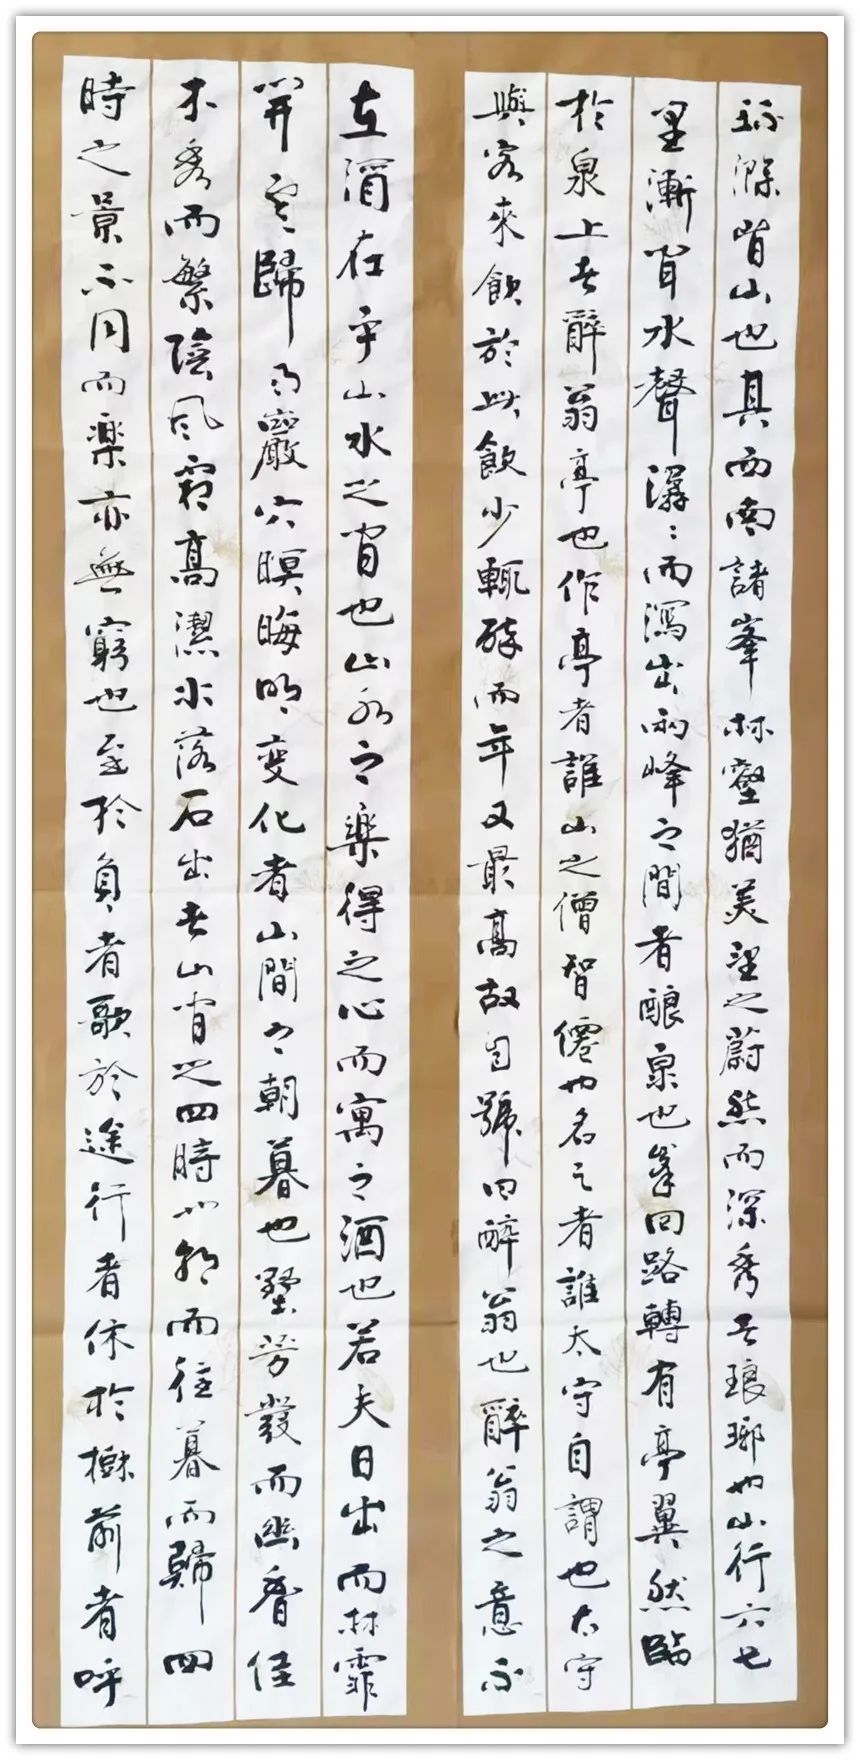 環滁皆山也其西南諸峯林壑猶美望之蔚然而深秀者琅琊也山行六七
里漸聞水聲潺〻而瀉出兩峰之間者釀泉也峯回路轉有亭翼然臨
於泉上者醉翁亭也作亭者誰山之僧智僊也名之者誰太守自謂也太守
與客來飲於此飲少輒醉而年又最高故自號曰醉翁也醉翁之意不
在酒在乎山水之間也山水之樂得之心而寓之酒也若夫日出而林霏
開雲歸而巖穴暝晦明變化者山間之朝暮也野芳發而幽香佳
木秀而繁陰風霜高潔水落石出者山間之四時也朝而往暮而歸四
時之景不同而樂亦無窮也至於負者歌於途行者休於樹前者呼